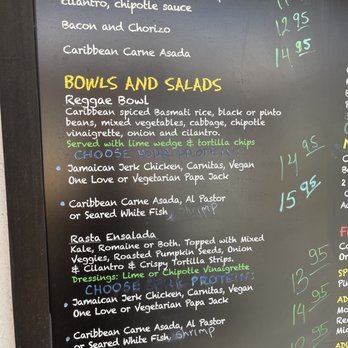 cilantro, chipotle sauce
Bacon and Chorizo 12.95
Caribbean Carne Asada 14.95
BOWLS AND SALADS
Reggae Bowl
Caribbean spiced Basmati rice, black or pinto
beans, mixed vegetables, cabbage, chipotle
vinaigrette, onion and cilantro.
Served with lime wedge & tortilla chips
CHOOSE YOUR PROTEIN:
• Jamaican Jerk Chicken, Carnitas, Vegan 14.95
One Love or Vegetarian Papa Jack
• Caribbean Carne Asada, Al Pastor 15.95
or Seared White Fish, Shrimp
Rasta Ensalada
Kale, Romaine or Both. Topped with Mixed
Veggies, Roasted Pumpkin Seeds, Onion
& Cilantro & Crispy Tortilla Strips.
Dressings: Lime or Chipotle Vinaigrette
CHOOSE YOUR PROTEIN:
• Jamaican Jerk Chicken, Carnitas, Vegan 13.95
One Love or Vegetarian Papa Jack
• Caribbean Carne Asada, Al Pastor 14.95
or Seared White Fish, Shrimp